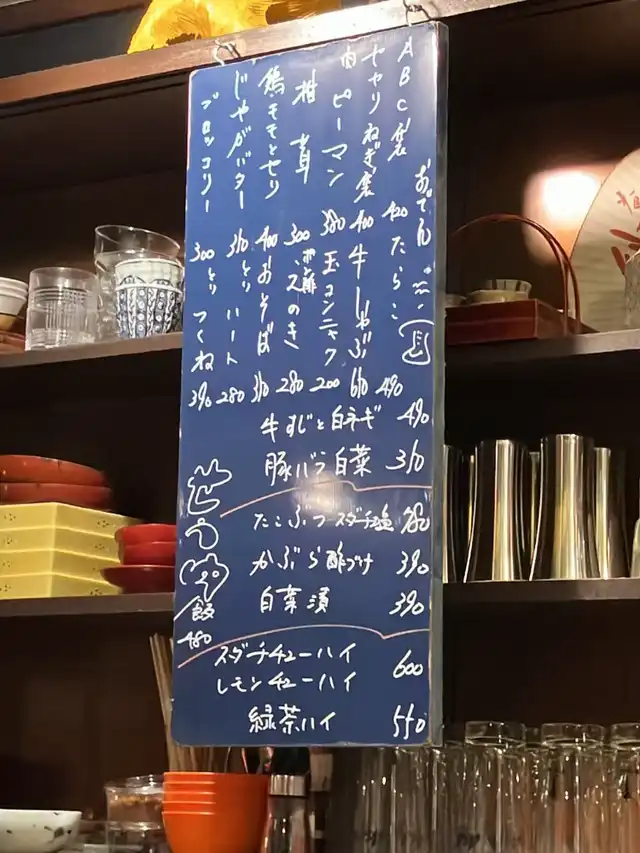 おでん
ABC袋 420
セセリねぎ袋 400
肉ピーマン 380
椎茸 300
鶏モモとセリ 400
じゃがバター 310
ブロッコリー 300
たらこ 490
牛しゃぶ 610
玉コンニャク 200
ポン酢 えのき 280
おそば 310
とりハート 280
とりつくね 390
牛すじと白ネギ 490
豚バラ白菜 310
たこぶつ スダチ塩
かぶら酢づけ 390
白菜漬 390
せうゆ飯 480
スダチチューハイ
レモンチューハイ 600
緑茶ハイ 550